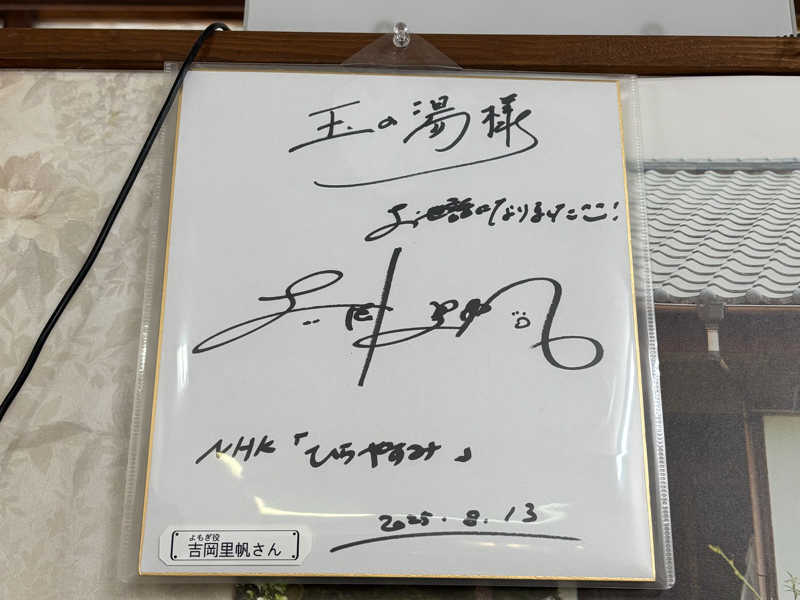 玉の湯様
お世話になりました!
NHK「ひらやすみ」
2025.8.13
よもぎ役
吉岡里帆さん